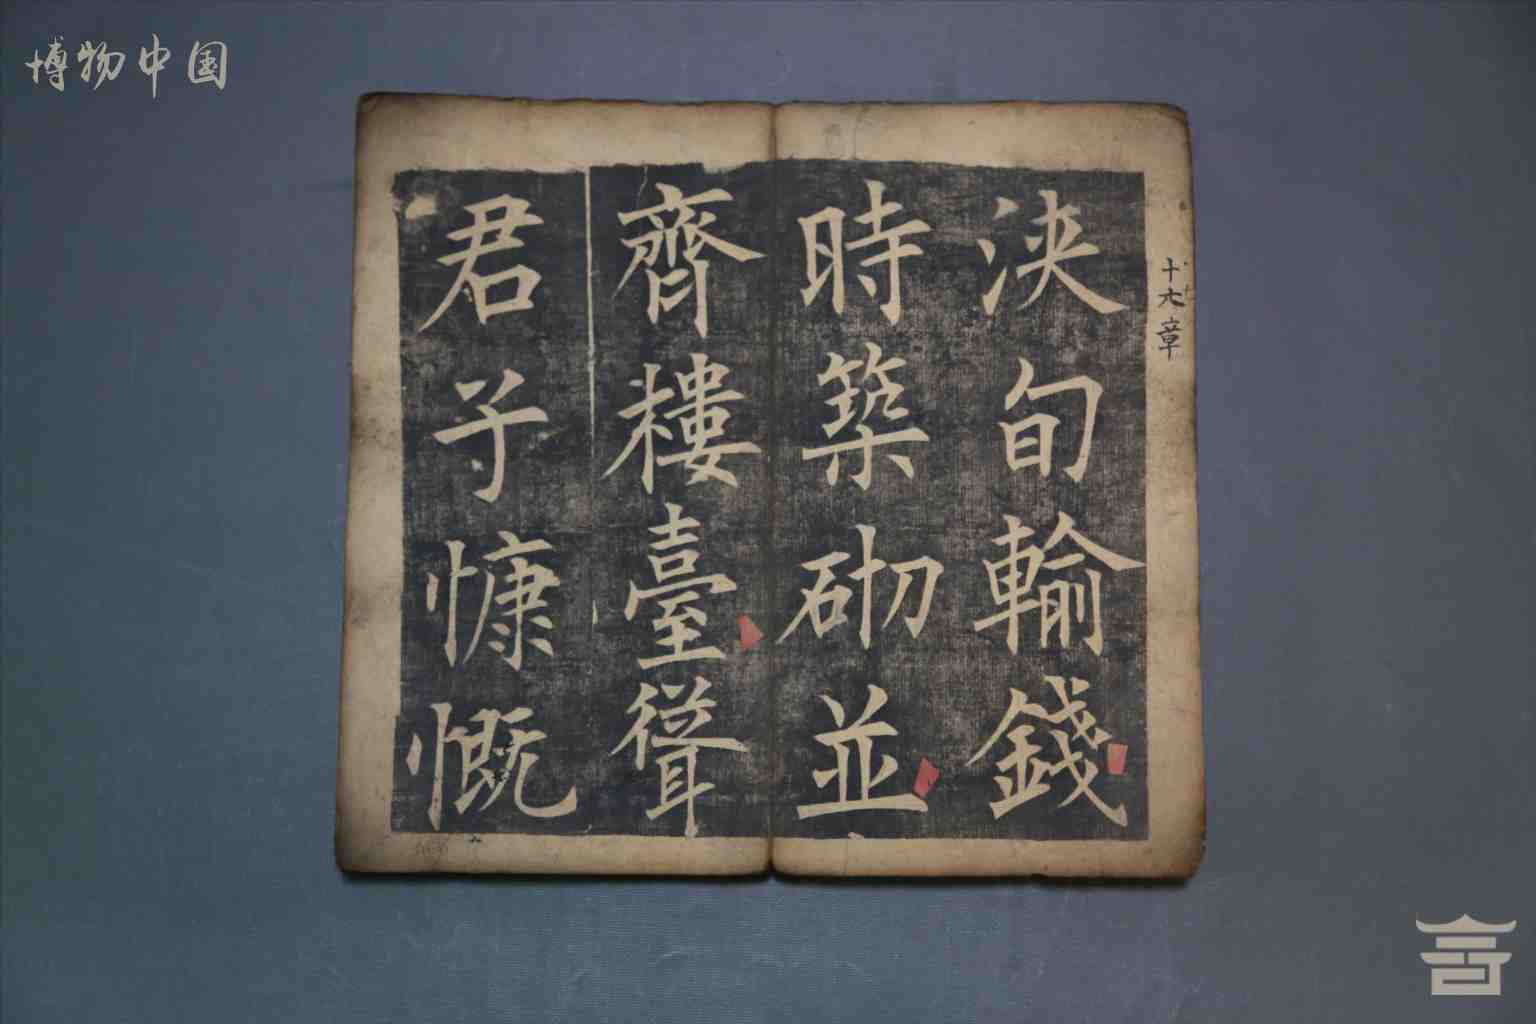 博物中国
十六章
浹旬輸錢
時築砌並
齊樓臺聳
君子慷慨